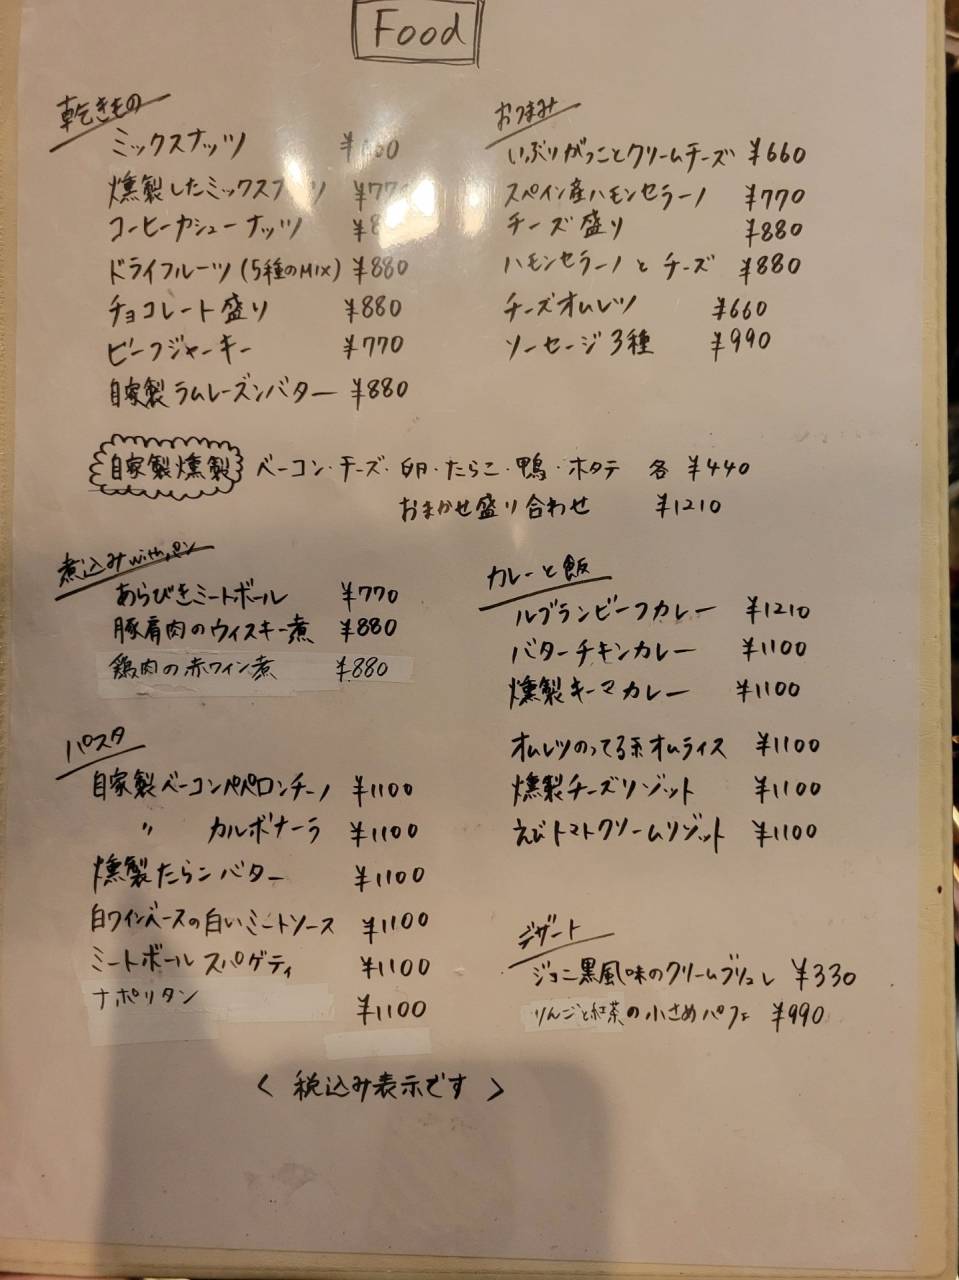 Food
乾きもの
ミックスナッツ
燻製したミックスナッツ ¥770
コーヒーカシューナッツ
ドライフルーツ (5種のMIX) ¥880
チョコレート盛り ¥880
ビーフジャーキー ¥770
自家製ラムレーズンバター ¥880
おつまみ
いぶりがっことクリームチーズ ¥660
スペイン産ハモンセラーノ ¥770
チーズ盛り ¥880
ハモンセラーノとチーズ ¥880
チーズオムレツ ¥660
ソーセージ3種 ¥990
自家製燻製 ベーコン・チーズ・卵・たらこ・鴨・ホタテ 各 ¥440
おまかせ盛り合わせ ¥1210
煮込みwithパン
あらびきミートボール ¥770
豚肩肉のウィスキー煮 ¥880
鶏肉の赤ワイン煮 ¥880
パスタ
自家製ベーコンペペロンチーノ ¥1100
〃 カルボナーラ ¥1100
燻製たらこバター ¥1100
白ワインベースの白いミートソース ¥1100
ミートボールスパゲティ ¥1100
ナポリタン ¥1100
カレーと飯
ルブランビーフカレー ¥1210
バターチキンカレー ¥1100
燻製キーマカレー ¥1100
オムレツのってる系オムライス ¥1100
燻製チーズリゾット ¥1100
えびトマトクリームリゾット ¥1100
デザート
ジョニ黒風味のクリームブリュレ ¥330
りんごと紅茶の小さめパフェ ¥990
< 税込み表示です >